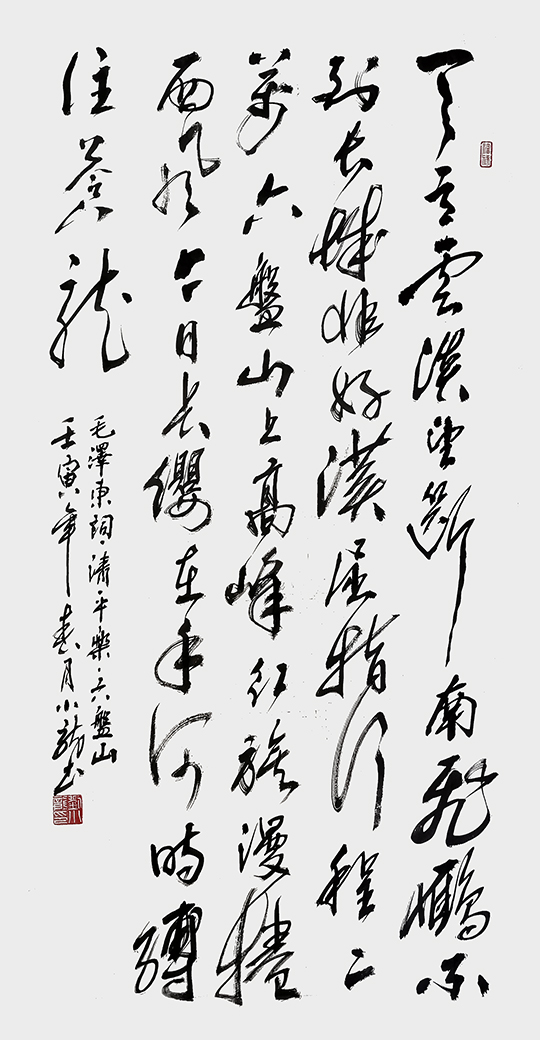 天高雲淡望斷南飛雁不
到長城非好漢屈指行程二
萬六盤山上高峰紅旗漫捲
西風今日長纓在手何時縛
住蒼龍
毛澤東詞·清平樂·六盤山
壬寅年春月小龍书